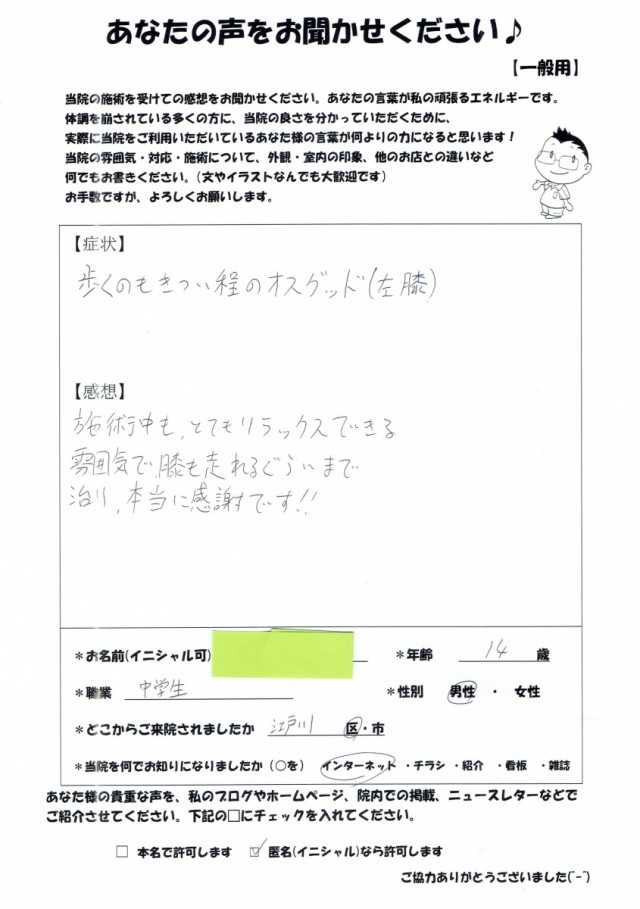 あなたの声をお聞かせください♪
【一般用】
当院の施術を受けての感想をお聞かせください。あなたの言葉が私の頑張るエネルギーです。
体調を崩されている多くの方に、当院の良さを分かっていただくために、
実際に当院をご利用いただいているあなた様の言葉が何よりの力になると思います！
当院の雰囲気・対応・施術について、外観・室内の印象、他のお店との違いなど
何でもお書きください。(文やイラストなんでも大歓迎です)
お手数ですが、よろしくお願いします。
【症状】
歩くのもきつい程のオスグッド(左膝)
【感想】
施術中も、とてもリラックスできる
雰囲気で、膝も走れるぐらいまで
治り、本当に感謝です!!
*お名前(イニシャル可) *年齢 14 歳
*職業 中学生 *性別 男性 ・ 女性
*どこからご来院されましたか 江戸川 区・市
*当院を何でお知りになりましたか (○を) インターネット ・チラシ ・紹介 ・看板 ・雑誌
あなた様の貴重な声を、私のブログやホームページ、院内での掲載、ニュースレターなどで
ご紹介させてください。下記の□にチェックを入れてください。
□ 本名で許可します ☑ 匿名(イニシャル)なら許可します
ご協力ありがとうございました(^-^)